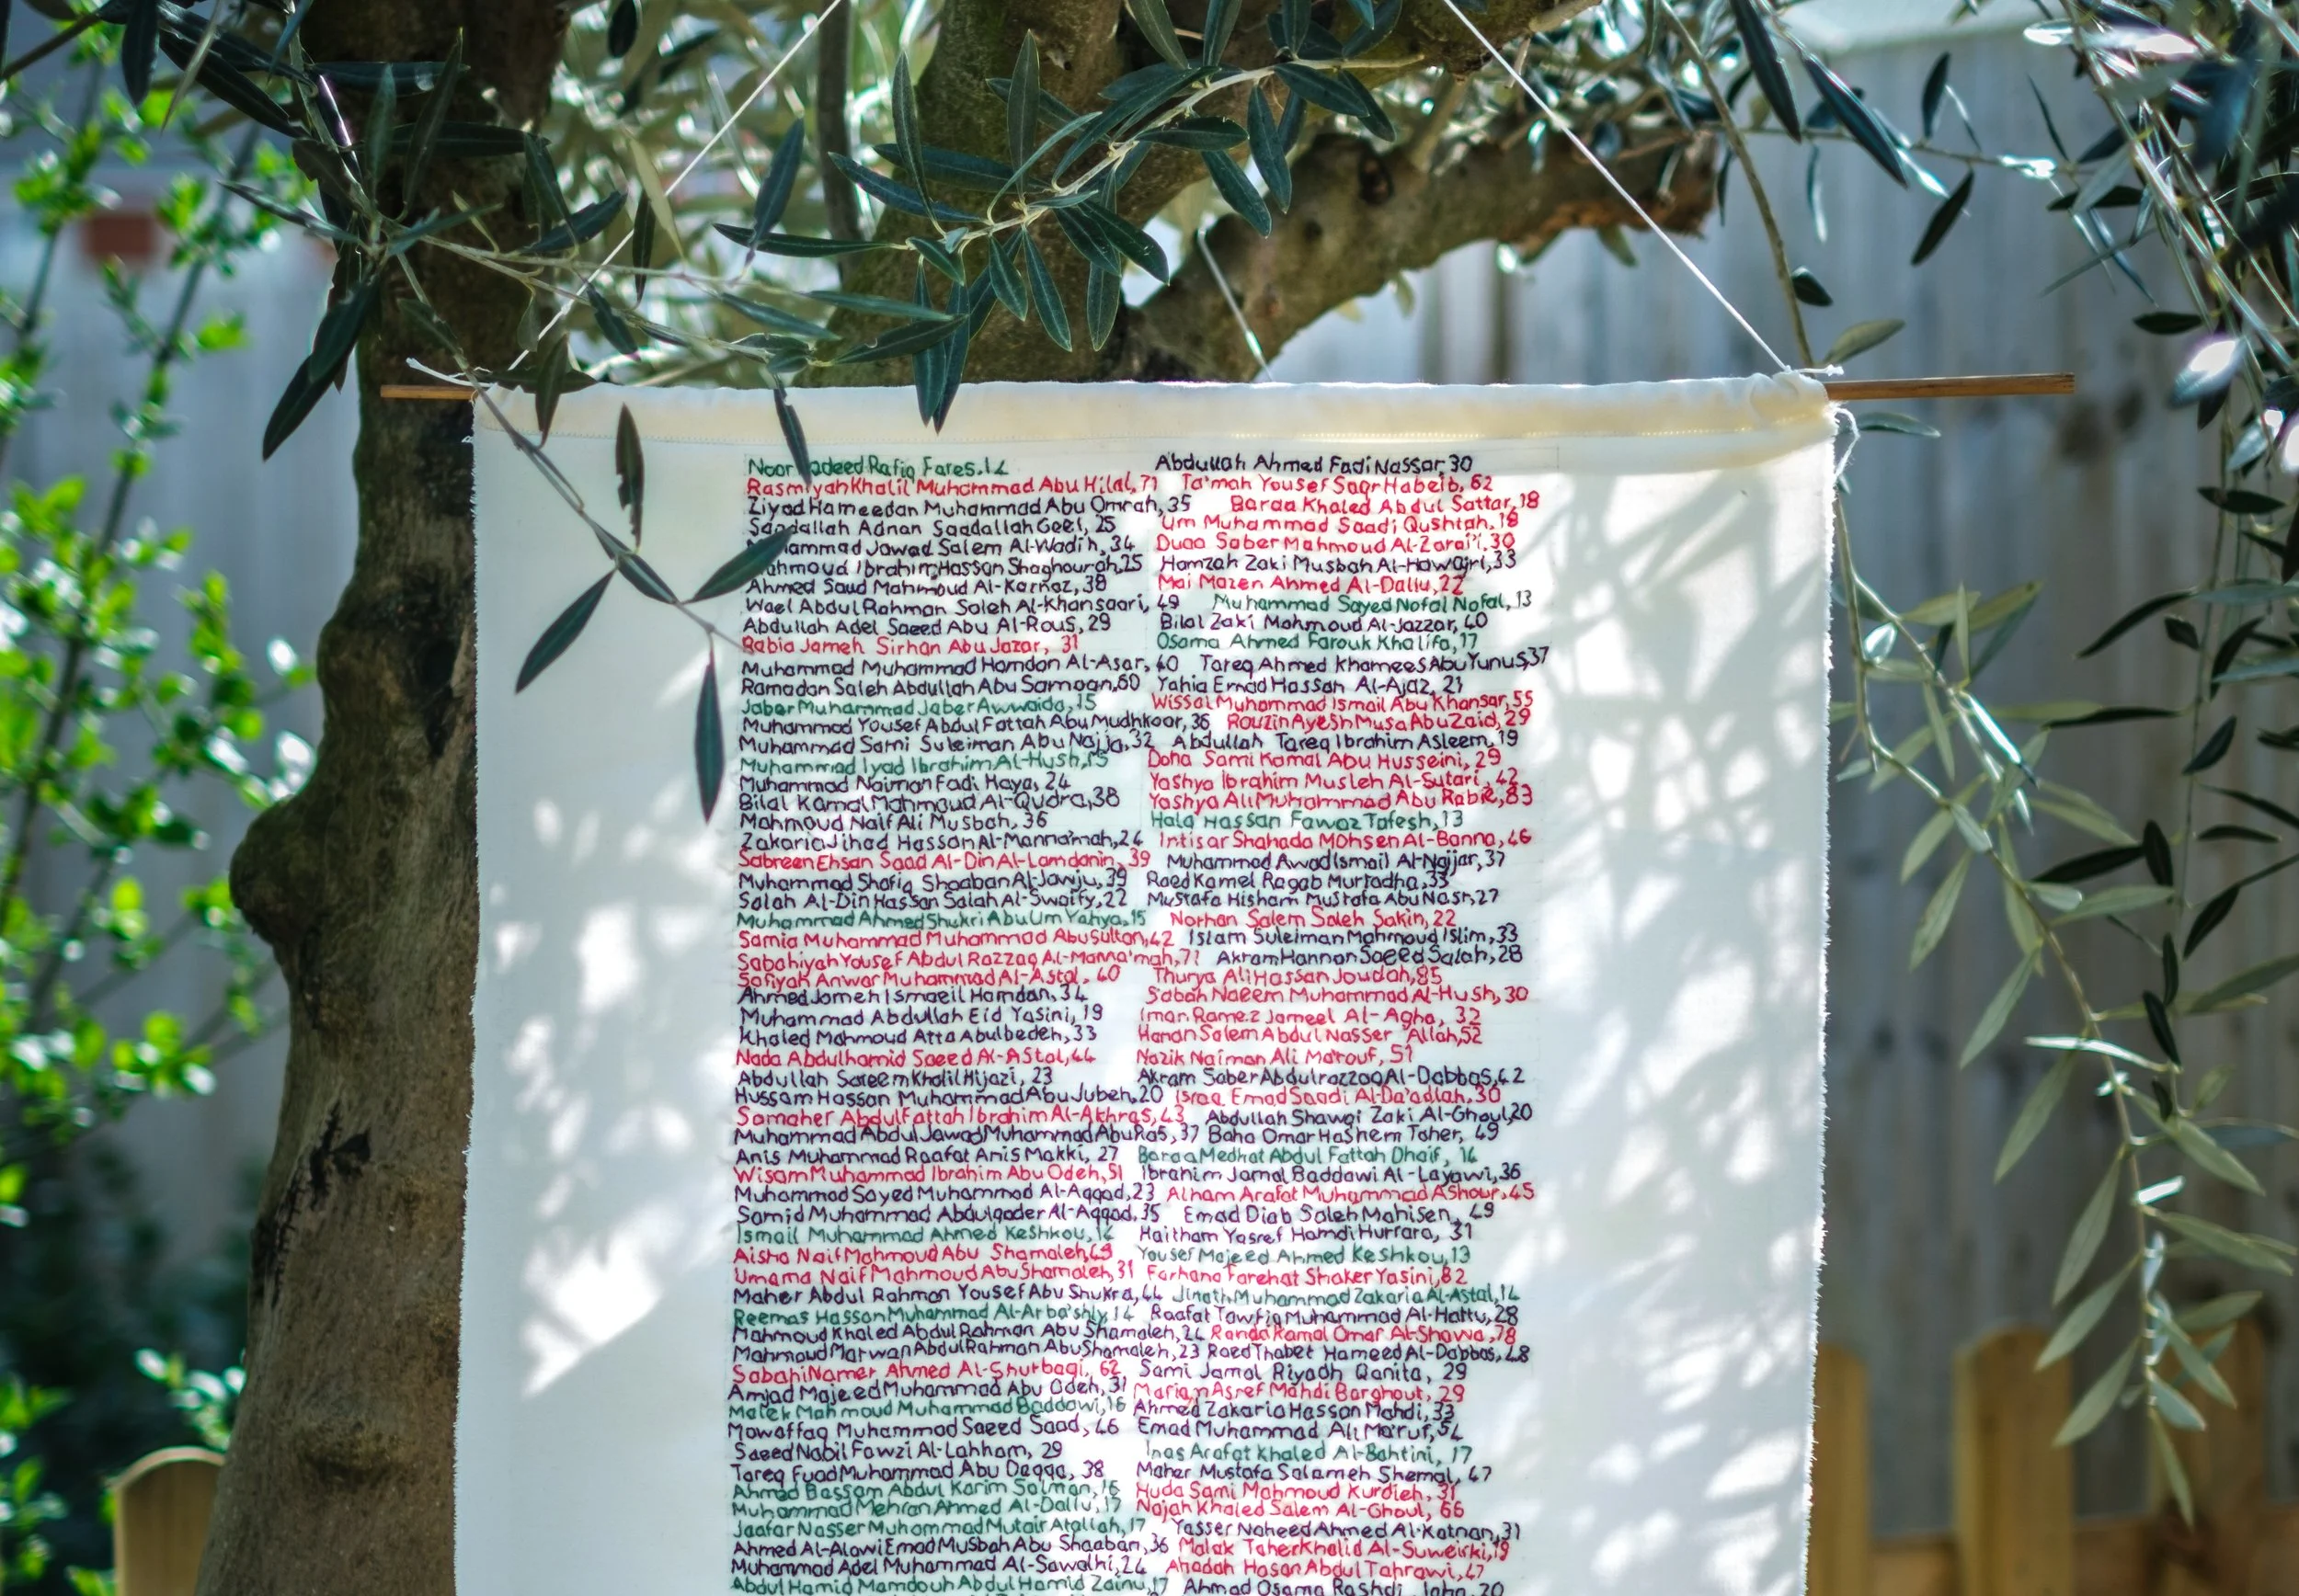 Noor Rafiq Fares. 14 Abdullah Ahmed Fadi Nassar, 30
Rasmiyah Khalil Muhammad Abu Hilal, 71 Ta'mah Yousef Saqr Habeib, 62
Ziyad Hameedan Muhammad Abu Omrah, 35 Baraa Khaled Abdul Sattar, 18
Saadallah Adnan Saadallah Geel, 25 Um Muhammad Saadi Qushtah, 18
Jawad Salem Al-Wadih, 34 Duaa Saber Mahmoud Al-Zarai'i, 30
Ibrahim Hassan Shaghourah, 25 Hamzah Zaki Musbah Al-Hawajri, 33
Ahmed Saud Mahmoud Al-Karnaz, 38 Mai Mazen Ahmed Al-Dallu, 22
Wael Abdul Rahman Saleh Al-Khansaari, 49 Muhammad Sayed Nofal Nofal, 13
Abdullah Adel Saeed Abu Al-Rous, 29 Bilal Zaki Mahmoud Al-Jazzar, 40
Rabia Jameh Sirhan Abu Jazar, 31 Osama Ahmed Farouk Khalifa, 17
Muhammad Muhammad Hamdan Al-Asar, 40 Tareq Ahmed Khamees Abu Yunus, 37
Ramadan Saleh Abdullah Abu Samaan, 60 Yahia Emad Hassan Al-Ajaz, 21
Jaber Muhammad Jaber Awwaida, 15 Wissal Muhammad Ismail Abu Khansar, 55
Muhammad Yousef Abdul Fattah Abu Mudhkoor, 36 Rouzin Ayesh Musa Abu Zaid, 29
Muhammad Sami Suleiman Abu Najja, 32 Abdullah Tareq Ibrahim Asleem, 19
Muhammad Iyad Ibrahim Al-Hush, 15 Doha Sami Kamal Abu Husseini, 29
Muhammad Naiman Fadi Haya, 24 Yashya Ibrahim Musleh Al-Sutari, 42
Bilal Kamal Mahmoud Al-Qudra, 38 Yashya Ali Muhammad Abu Rabie, 83
Mahmoud Naif Ali Musbah, 36 Hala Hassan Fawaz Tafesh, 13
Zakaria Jihad Hassan Al-Manna'mah, 24 Intisar Shahada Mohsen Al-Banna, 46
Sabreen Ehsan Saad Al-Din Al-Lamdanin, 39 Muhammad Awad Ismail Al-Najjar, 37
Muhammad Shafiq Shaaban Al-Jawju, 39 Raed Kamel Ragab Murtadha, 33
Salah Al-Din Hassan Salah Al-Swaity, 22 Mustafa Hisham Mustafa Abu Nasr, 27
Muhammad Ahmed Shukri Abu Um Yahya, 15 Norhan Salem Saleh Sakin, 22
Samia Muhammad Muhammad Abu Sultan, 42 Islam Suleiman Mahmoud Islim, 33
Sabahiyah Yousef Abdul Razzaq Al-Manna'mah, 71 Akram Hannon Saeed Salah, 28
Safiyah Anwar Muhammad Al-Astal, 40 Thurya Ali Hassan Joudah, 85
Ahmed Jameh Ismaeil Hamdan, 34 Sabah Naeem Muhammad Al-Hush, 30
Muhammad Abdullah Eid Yasini, 19 Iman Ramez Jameel Al-Agha, 32
Khaled Mahmoud Atta Abulbedeh, 33 Hanan Salem Abdul Nasser Allah, 52
Nada Abdulhamid Saeed Al-Astal, 44 Nazik Naiman Ali Ma'rouf, 51
Abdullah Sateem Khalil Hijazi, 23 Akram Saber Abdulrazzaq Al-Dabbas, 42
Hussam Hassan Muhammad Abu Jubeh, 20 Israa Emad Saadi Al-Da'adlah, 30
Samaher Abdul Fattah Ibrahim Al-Akhras, 43 Abdullah Shawqi Zaki Al-Ghoul, 20
Muhammad Abdul Jawad Muhammad Abu Ras, 37 Baha Omar Hashem Taher, 49
Anis Muhammad Raafat Anis Makki, 27 Baraa Medhat Abdul Fattah Dhaif, 14
Wisam Muhammad Ibrahim Abu Odeh, 51 Ibrahim Jamal Baddawi Al-Layawi, 36
Muhammad Sayed Muhammad Al-Aqqad, 23 Alham Arafat Muhammad Ashour, 45
Samid Muhammad Abdulqader Al-Aqqad, 35 Emad Diab Saleh Mahisen, 49
Ismail Muhammad Ahmed Keshkou, 14 Haitham Yasref Hamdi Hurrara, 31
Aisha Naif Mahmoud Abu Shamaleh, 49 Yousef Majeed Ahmed Keshkou, 13
Umama Naif Mahmoud Abu Shamaleh, 31 Farhana Farehat Shaker Yasini, 82
Maher Abdul Rahman Yousef Abu Shukra, 44 Jinath Muhammad Zakaria Al-Astal, 14
Reemas Hassan Muhammad Al-Arba'shly, 14 Raafat Tawfiq Muhammad Al-Hattu, 28
Mahmoud Khaled Abdul Rahman Abu Shamaleh, 24 Randa Kamal Omar Al-Shawa, 78
Mahmoud Marwan Abdul Rahman Abu Shamaleh, 23 Raed Thabet Hameed Al-Dabbas, 48
Sabahi Namer Ahmed Al-Shurbagi, 62 Sami Jamal Riyadh Qanita, 29
Amjad Majeed Muhammad Abu Odeh, 31 Marian Asref Mahdi Barghout, 29
Malek Mahmoud Muhammad Baddawi, 16 Ahmed Zakaria Hassan Mahdi, 33
Mowaffaq Muhammad Saeed Saad, 46 Emad Muhammad Ali Ma'ruf, 54
Saeed Nabil Fawzi Al-Lahham, 29 Inas Arafat Khaled Al-Bahtini, 17
Tareq Fuad Muhammad Abu Daqqa, 38 Maher Mustafa Salameh Shemal, 47
Ahmed Bassam Abdul Karim Salman, 16 Huda Sami Mahmoud Kurdieh, 31
Muhammad Mehran Ahmed Al-Dallu, 17 Najah Khaled Salem Al-Ghoul, 66
Jaafar Nasser Muhammad Mutair Atallah, 17 Yasser Naheed Ahmed Al-Katnan, 31
Ahmed Al-Alawi Emad Musbah Abu Shaaban, 36 Malak Taher Khalid Al-Suweirki, 19
Muhammad Adel Muhammad Al-Sawalhi, 24 Ahadah Hasan Abdul Tahrawi, 47
Abdul Hamid Mamdouh Abdul Hamid Zainu, 17 Ahmad Osama Rashdi 20